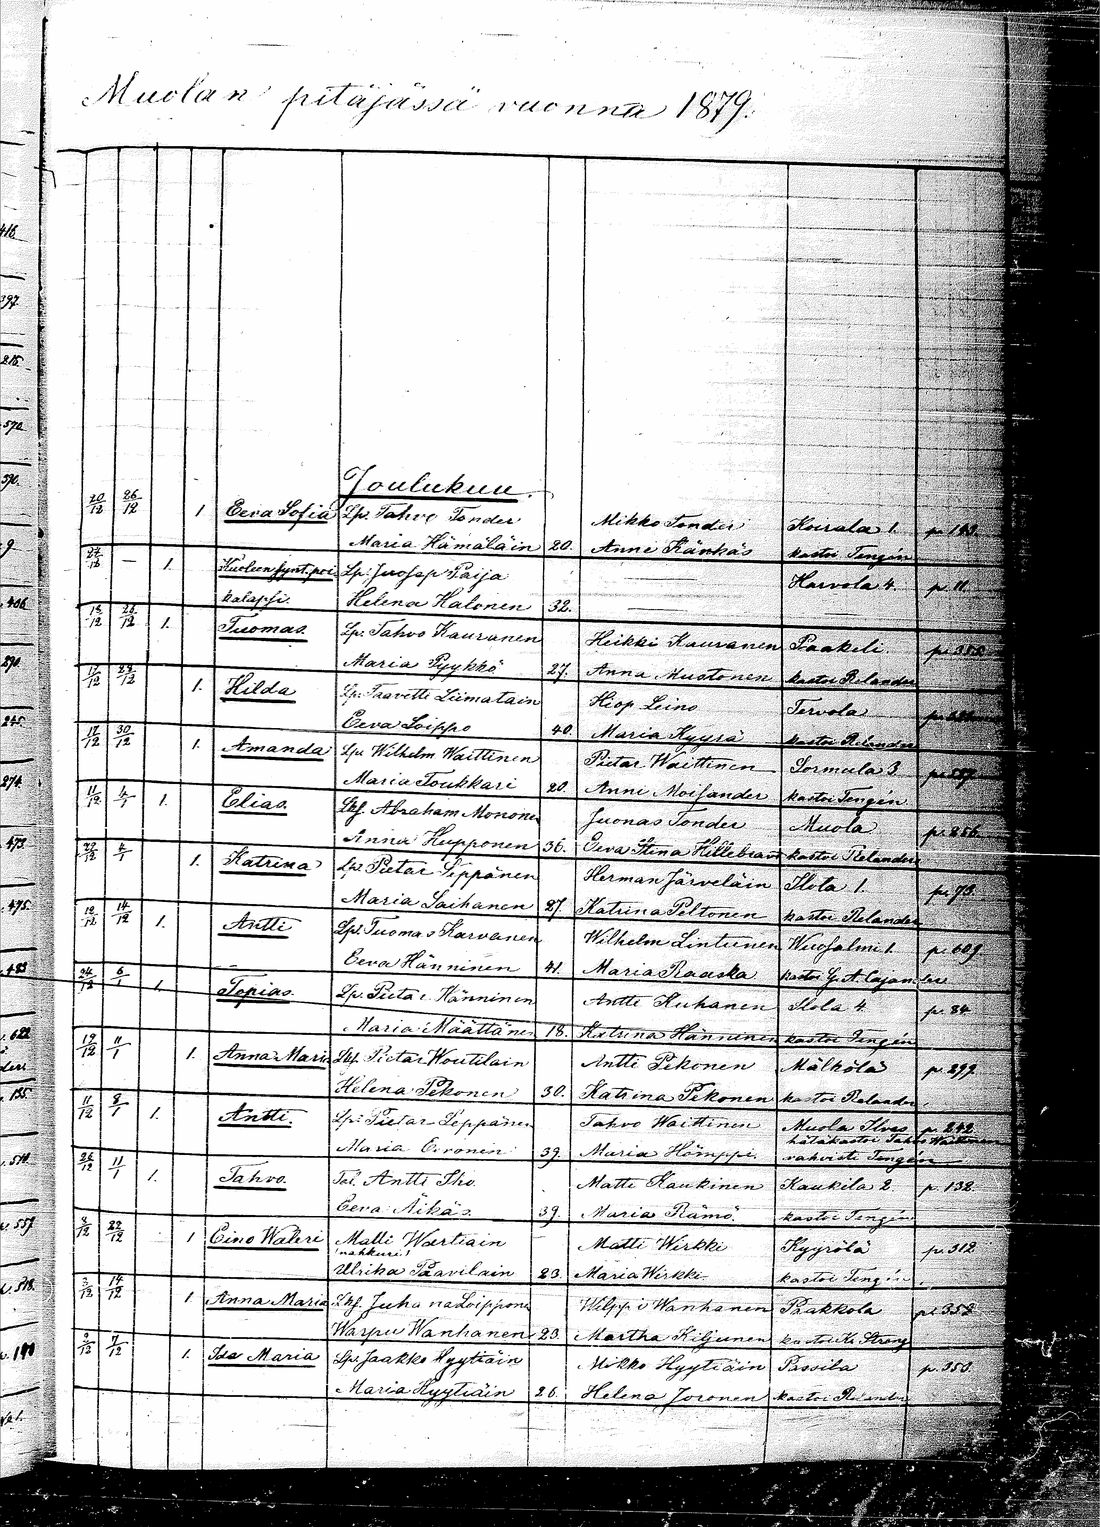 Muolan pitäjässä vuonna 1879.
Joulukuu.
20/12 26/12 1 Eeva Sofia Lp. Tahvo Tonder Mikko Tonder Koirala 1. p. 193.
Maria Hämäläin 20. Anni Känkäs kastoi Tengén
22/12 — 1. Kuoleen synt. poi Lp. Juosep Paija Harvola 4. p. 11.
kalapsi. Helena Halonen 32.
18/12 26/12 1. Tuomas. Lp. Tahvo Kauranen Heikki Kauranen Paakeli p. 355
Maria Pyykkö 27. Anna Mustonen kastoi Relander
17/12 28/12 1. Hilda Lp. Taavetti Liimatain Heop Leino Tervola
Eeva Loippo 40. Maria Kyyrä kastoi Relander
17/12 30/12 1. Amanda Lp. Wilhelm Waittinen Pietar Waittinen Sormula 3. p. 557.
Maria Toukkari 20. Anni Moisander kastoi Tengén
11/12 4/1 1. Elias. Lkf. Abraham Mononen Juonas Tonder Muola p. 856.
Anna Hupponen 36. Eeva Stina Hillebrant kastoi Relander
29/12 4/1 1. Katrina Lp. Pietar Seppänen Herman Järveläin Ilola 1. p. 73.
Maria Laihanen 27. Katrina Peltonen kastoi Relander
12/12 14/12 1. Antti Lp. Tuomas Karvanen Wilhelm Lintunen Wuosalmi 1. p. 609.
Eeva Hänninen 41. Maria Raaska kastoi G. A. Cajander
24/12 6/1 1. Topias. Lp. Pietar Hänninen Antti Kuhanen Ilola 4. p. 84.
Maria Määttänen 18. Katrina Hänninen kastoi Tengén
19/12 11/1 1. Anna Maria Lkf. Pietar Woutilain Antti Pekonen Mälkölä p. 299.
Helena Pekonen 30. Katrina Pekonen kastoi Relander
11/12 8/1 1. Antti. Lp. Pietar Leppänen Tahvo Waittinen Muola Ilves p. 242
hätäkastoi Tahvo Waittinen
Maria Orronen 39. Maria Hömppi. vahvisti Tengén
26/12 11/1 1. Tahvo. Tal. Antti Iho. Matti Kaukinen Kaukila 2. p. 138.
Eeva Äikäs 39. Maria Rämö. kastoi Tengén
8/12 22/12 1 Eino Waleri Matti Wærtiain Matti Wirkki Kyyrölä p. 312
(nahkuri)
Ulrika Paavilain 23. Maria Wirkki kastoi Tengén
2/12 14/12 1 Anna Maria Lkf. Juhana Loipponen Wilppi Wanhanen Pakkola p. 358.
Warpu Wanhanen 23. Martha Kiljunen kastoi
2/12 7/12 1. Ida Maria Lp. Jaakko Hyytiäin Mikko Hyytiäin Passila p. 353.
Maria Hyytiäin 26. Helena Joronen kastoi Relander